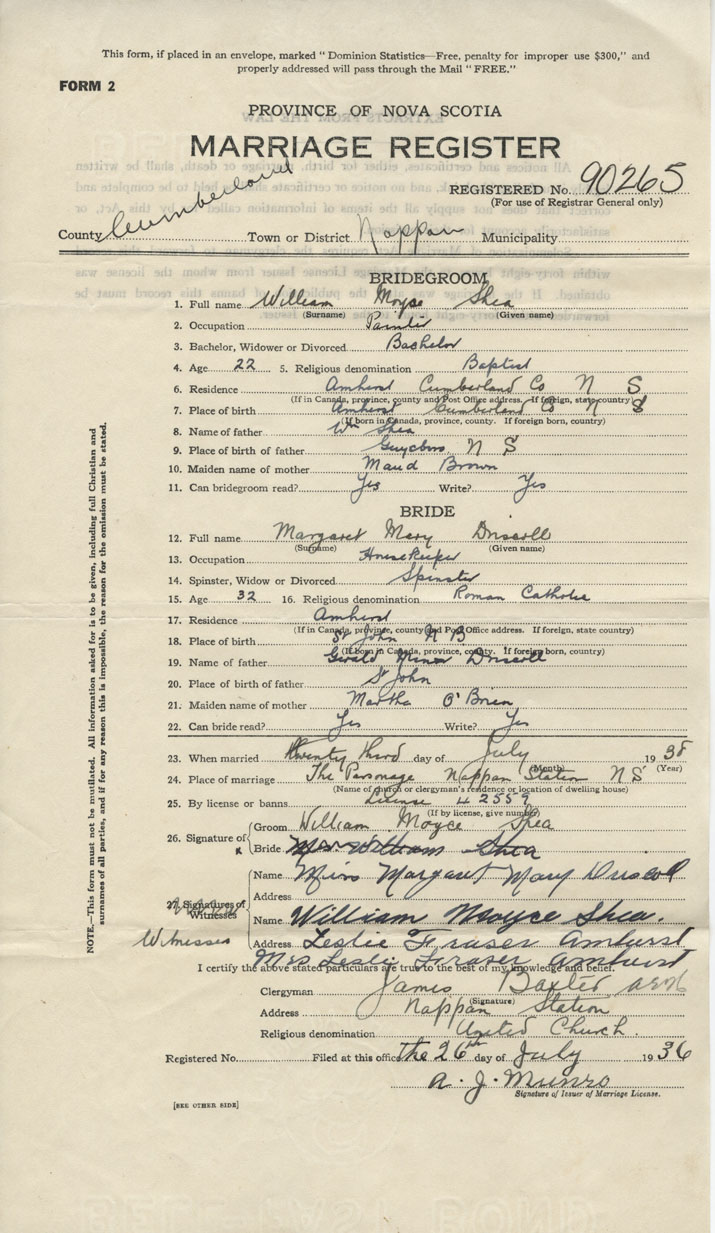 This form, if placed in an envelope, marked "Dominion Statistics—Free, penalty for improper use $300," and
properly addressed will pass through the Mail "FREE."
FORM 2
PROVINCE OF NOVA SCOTIA
MARRIAGE REGISTER
REGISTERED No. 90265
(For use of Registrar General only)
County Cumberland Town or District Nappan Municipality
BRIDEGROOM
1. Full name William Moyse Shea
(Surname) (Given name)
2. Occupation Painter
3. Bachelor, Widower or Divorced Bachelor
4. Age 22 5. Religious denomination Baptist
6. Residence Amherst Cumberland Co N S
(If in Canada, province, county and Post Office address. If foreign, state country)
7. Place of birth Amherst Cumberland Co N S
(If born in Canada, province, county. If foreign born, country)
8. Name of father Wm Shea
9. Place of birth of father Guysboro N S
10. Maiden name of mother Maud Brown
11. Can bridegroom read? Yes Write? Yes
BRIDE
12. Full name Margaret Mary Driscoll
(Surname) (Given name)
13. Occupation Housekeeper
14. Spinster, Widow or Divorced Spinster
15. Age 32 16. Religious denomination Roman Catholic
17. Residence Amherst
(If in Canada, province, county and Post Office address. If foreign, state country)
18. Place of birth St John N B
(If born in Canada, province, county. If foreign born, country)
19. Name of father Gerald Driscoll
20. Place of birth of father St John
21. Maiden name of mother Martha O'Brien
22. Can bride read? Yes Write? Yes
23. When married twenty third day of July 19 36
(Month) (Year)
24. Place of marriage The Parsonage Nappan Station N S
(Name of church or clergyman's residence or location of dwelling house)
25. By license or banns License 42559
(If by license, give number)
26. Signature of Groom William Moyce Shea
x Bride Mrs. William Shea
Name Miss Margaret Mary Driscoll
Address
27. Signatures of Witnesses
Name William Moyce Shea.
Witnesses Address Leslie Fraser Amhurst
Mrs Leslie Fraser Amhurst
I certify the above stated particulars are true to the best of my knowledge and belief.
Clergyman James Baxter
(Signature)
Address Nappan Station
Religious denomination United Church.
Registered No. Filed at this office the 26th day of July 19 36
A. J. Munro
Signature of Issuer of Marriage License.
[SEE OTHER SIDE]
NOTE.—This form must not be mutilated. All information asked for is to be given, including full Christian and
surnames of all parties, and if for any reason this is impossible, the reason for the omission must be stated.